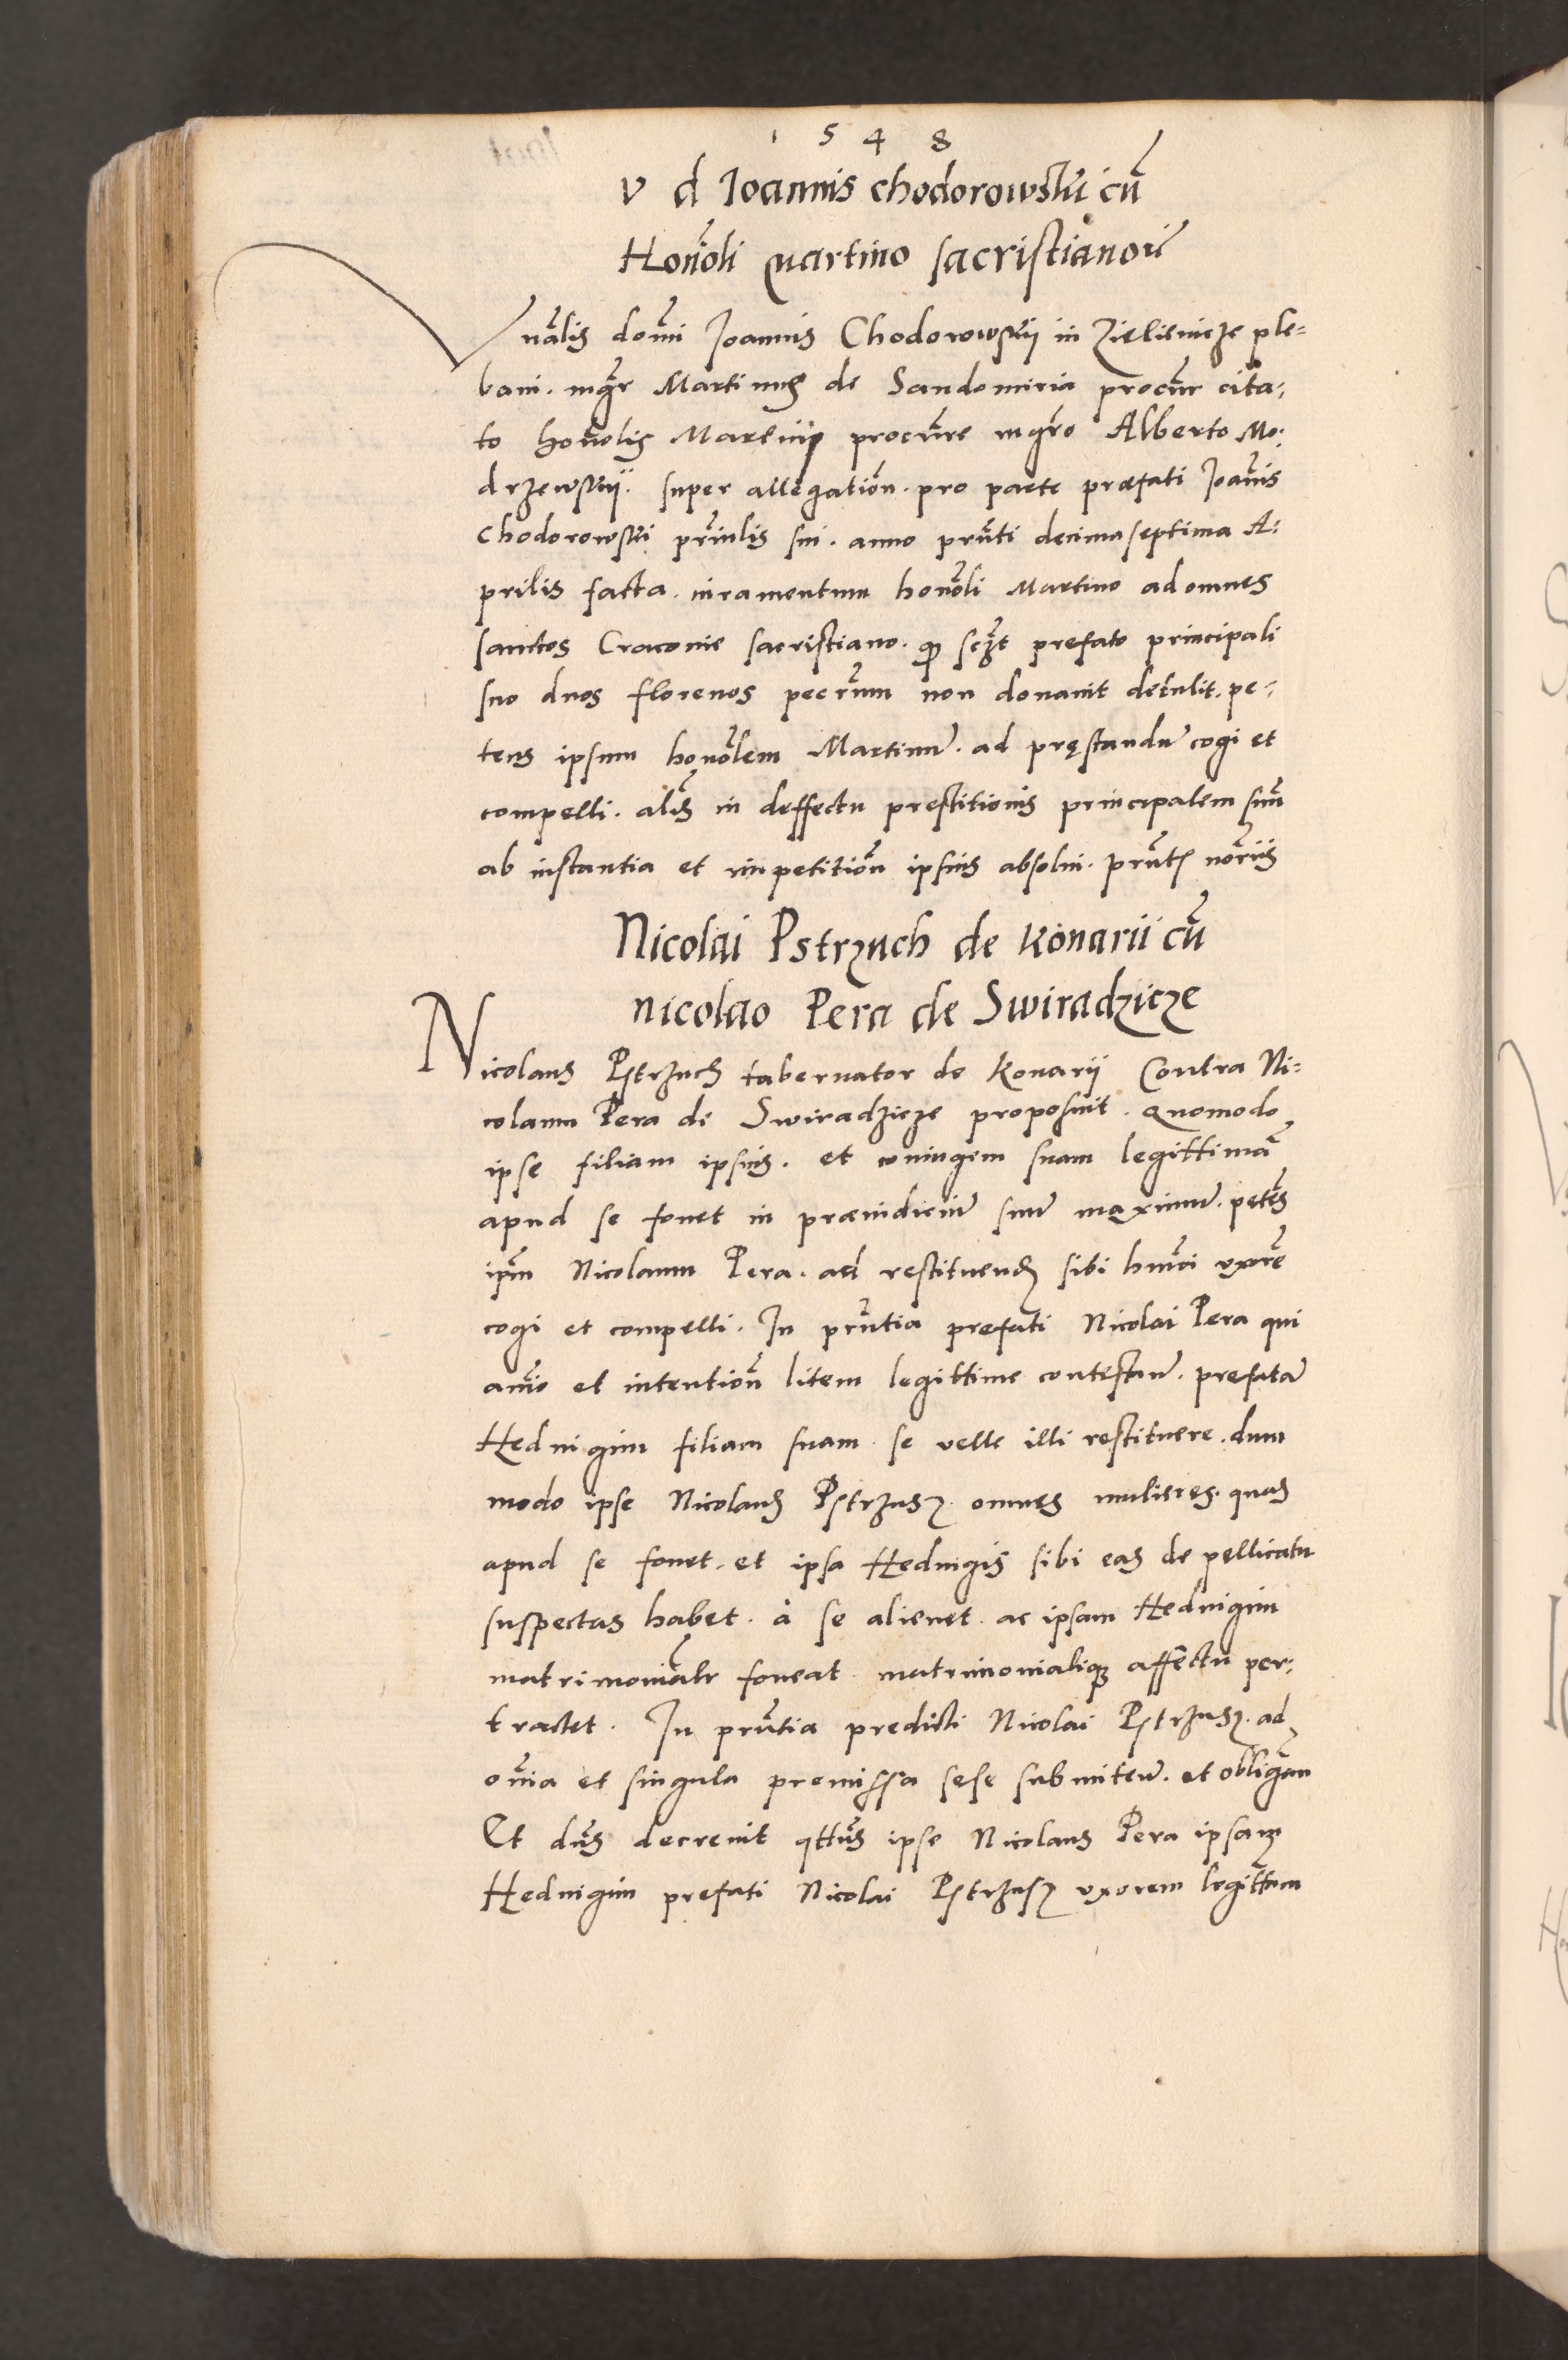 1548
V d Ioannis Chodorowski cū
Honoli Martino sacristianorū
Vnalis domi Joannis Chodorowskij in Zielienicze ple-
bani. mgr Martinus de Sandomiria procur cita-
to honolis Martini procure mgro Alberto Mo-
drzewskij. super allegation. pro parte præfati Joanis
Chodorowski prinlis sui. anno prnti decimaseptima A-
prilis facta. iuramentum honoli Martino ad omnes
sanctos Cracovie sacristiano. sczt prefato principali
suo duos florenos pecrum non donavit detulit. pe-
tens ipsum honolem Martinum. ad pręstandum cogi et
compelli. alis in deffectu prestitionis principalem suū
ab instantia et impetition ipsius absolvi. prntq noriis
Nicolai Pstrzuch de Konarii cū
Nicolao Pera de Swiradzicze
Nicolaus Pstrzuch tabernator de Konarij Contra Ni-
colaum Pera de Swiradzicze proposuit. quomodo
ipse filiam ipsius. et coniugem suam legittimā
apud se fovet in præiudicium suum maximum. petens
ipm Nicolaum Pera. ad restituend sibi hmoi uxorē
cogi et compelli. In prntia prefati Nicolai Pera qui
animo et intention litem legittime contestan. prefatam
Heduigim filiam suam se velle illi restituere. dum
modo ipse Nicolaus Pstrzusz. omnes mulieres. quas
apud se fovet. et ipsa Heduigis sibi eas de pellicatu
suspectas habet. à se alienet. ac ipsam Heduigim
matrimonialr foveat matrimonialiq affectu per-
tractet. In prntia predicti Nicolai Pstrzusz. ad
omia et singula premissa sese submitten. et obligan
Et dns decrevit qttus ipse Nicolaus Pera ipsam
Heduigim prefati Nicolai Pstrzusz uxorem legittimam